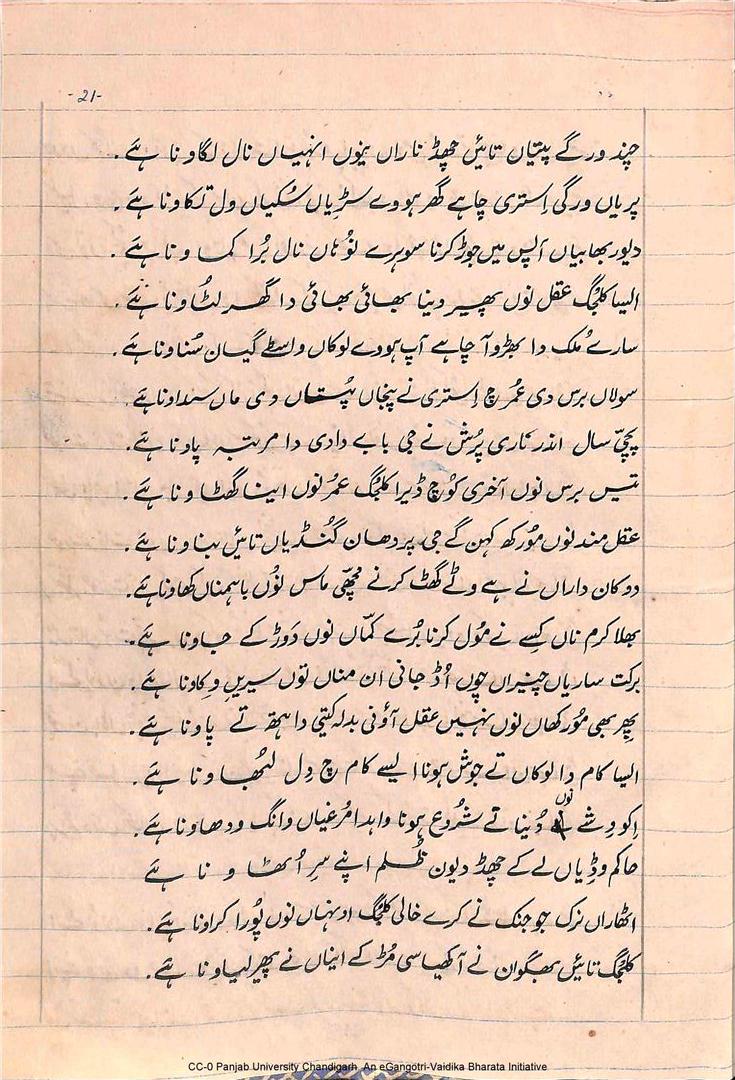 -21-
چندورگے پتیاں تائیں چھڈ ناراں نیوں انہیاں نال لگاونا ہئے۔
پریاں ورگی اِستری چاہے گھر ہووے سڑیاں سُکیاں ول تکاونا ہئے۔
دیور بھابیاں آپس میں جوڑ کرنا سوہرے نوُناں نال بُرا کماونا ہئے۔
ایسا کلجُگ عقل نوں پھیر دینا بھائی بھائی دا گھر لٹُاونا ہئے۔
سارے مُلک دا بھڑوآ چاہے آپ ہووے لوکاں واسطے گیان سُناونا ہئے۔
سولاں برس دی عمُر چ اِستری نے پنجاں پُستاں دی ماں سداونا ہئے۔
پچیّ سال اندر ناری پرُش نے جی بابے دادی دا مرتبہ پاونا ہئے۔
تیس برس نوں آخری کوُچ ڈیرا کلجُگ عمُر نوں اینا گھٹاونا ہئے۔
عقل مند نوں موُرکھ کہن گے جی پردھان گُنڈیاں تائیں بناونا ہئے۔
دوکان داراں نے ہے وٹے گھٹ کرنے مچھّی ماس نوُں باہمناں کھاونا ہئے۔
بھلا کرم ناں کِسے نے موُل کرنا بُرے کمّاں نوں دَوڑ کے جاونا ہئے۔
برکت ساریاں چیزاں چوں اُڈ جانی ان مناں توں سیریں وِکاونا ہئے۔
پھِر بھی موُرکھاں نوں نہیں عقل آؤنی بدلہ کیتی دا ہتھ تے پاونا ہئے۔
ایسا کام دا لوکاں تے جوش ہونا ایسے کام چ دِل لُبھاونا ہئے۔
اِکو وِشے نوں دُنیا تے شُروع ہونا واہدا مرُغیاں وانگ ودھاونا ہئے۔
حاکم وڈِیاں لے کے چھڈ دیون ظُلم اپنے سِر اُٹھاونا ہئے
اٹھاراں نرک جو جنک نے کرے خالی کلجُگ اونہاں نوں پُورا کراونا ہئے۔
کلجُگ تائیں بھگوان نے آکھیا سی مُڑ کے ایناں نے پھیر لیاونا ہئے۔
CC-0 Panjab University Chandigarh An eGangotri-Vaidika Bharata Initiative